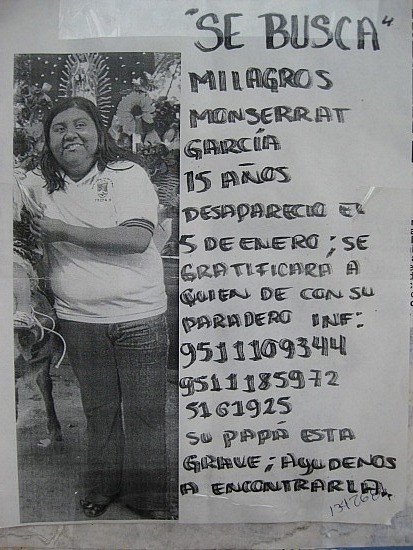 "SE BUSCA"
MILAGROS
MONSERRAT
GARCÍA
15 AÑOS
DESAPARECIO El
5 DE ENERO ; SE
GRATIFICARA A
QUIEN DE CON SU
PARADERO INF:
9511109344
9511185972
5161925
SU PAPÁ ESTA
GRAVE ; AyUDENOS
A ENCONTRARLA